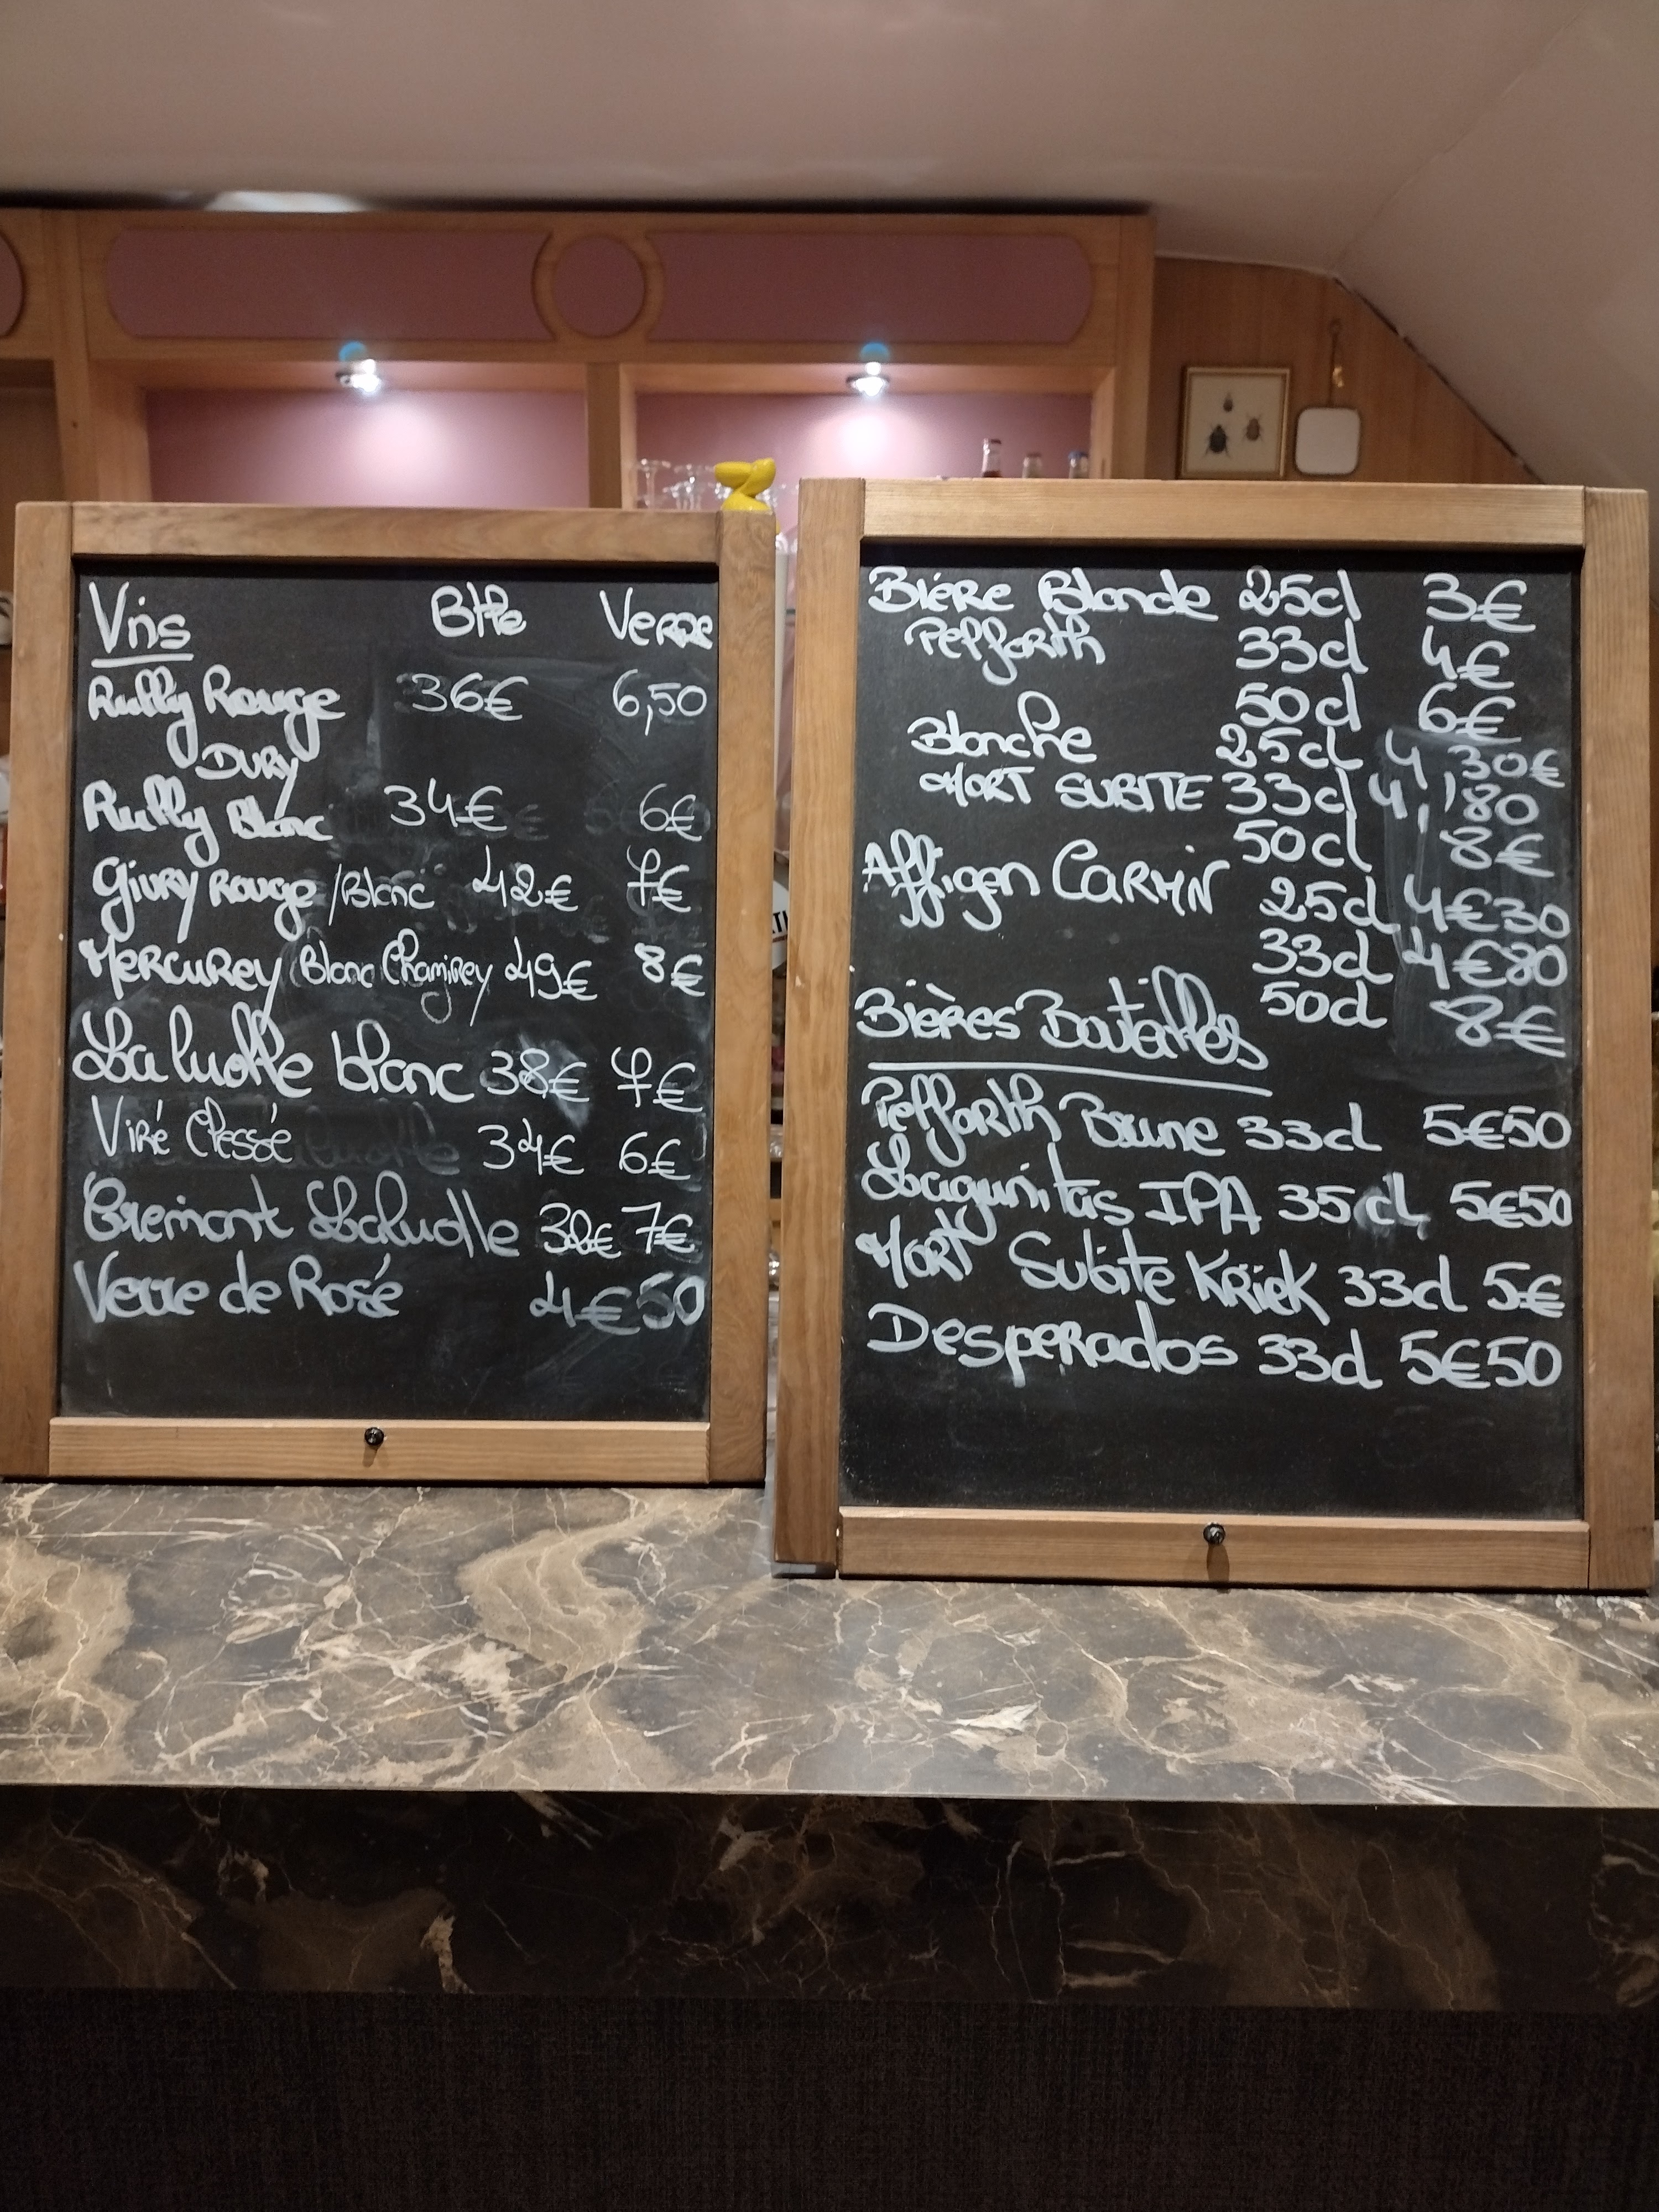 Vins Btlle Verre
Rully Rouge 36€ 6,50
DURY
Rully Blanc 34€ 6€
Givry Rouge /Blanc 42€ 7€
Mercurey Blanc Chamirey 49€ 8€
Laluolle blanc 38€ 7€
Viré Clessé 34€ 6€
Cremant Laluolle 38€ 7€
Verre de Rosé 4€50
Bière Blonde 25cl 3€
Pelforth 33cl 4€
50cl 6€
Blanche 25cl 4,30€
MORT SUBITE 33cl 4,80
50cl 8€
Affligen CARMIN
25cl 4€30
33cl 4€80
50cl 8€
Bières Bouteilles
Pelforth Brune 33cl 5€50
Lagunitas IPA 35cl 5€50
Mort Subite Kriek 33cl 5€
Desperados 33cl 5€50